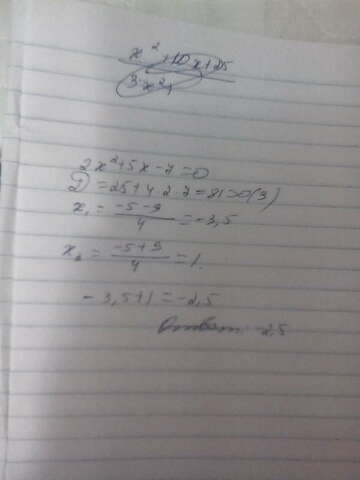 x²+10x+25
3x²
2x²+5x-7=0
D=25+4·2·7=81>0(9)
x₁=(-5-9)/4=-3,5
x₂=(-5+9)/4=1.
-3,5+1=-2,5
Ответ: -2,5